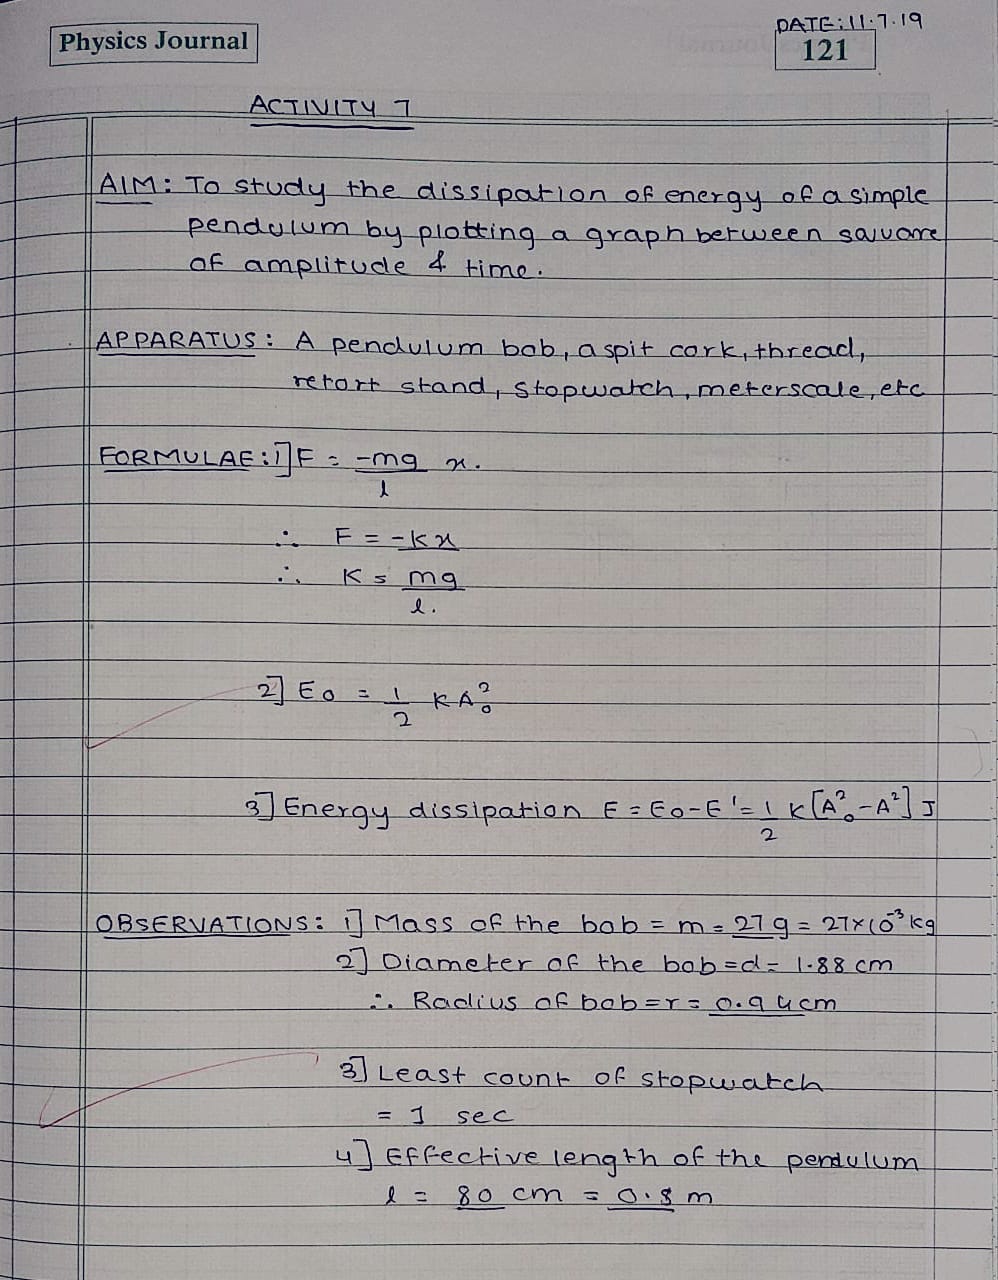 Physics Journal
DATE: 11.7.19
121
ACTIVITY 7
AIM: To study the dissipation of energy of a simple
pendulum by plotting a graph between square
of amplitude & time.
APPARATUS: A pendulum bob, a spit cork, thread,
retort stand, stopwatch, meterscale, etc
FORMULAE: 1] F = -mg/l x.
∴ F = -kx
∴ K = mg/l.
2] E₀ = 1/2 KA₀²
3] Energy dissipation E = E₀-E' = 1/2 K[A₀²-A²] J
OBSERVATIONS: 1] Mass of the bob = m = 27 g = 27×10⁻³ kg
2] Diameter of the bob = d = 1.88 cm
∴ Radius of bob = r = 0.94cm
3] Least count of stopwatch
= 1 sec
4] Effective length of the pendulum
l = 80 cm = 0.8 m